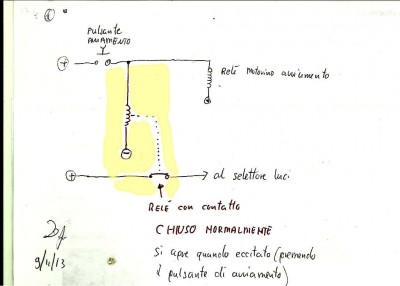 Pulsante
AVVIAMENTO
+
Relè Motorino avviamento
+
al selettore luci
RELÈ con contatto
CHIUSO NORMALMENTE
Si apre quando eccitato (premendo
il pulsante di avviamento)
9/11/13